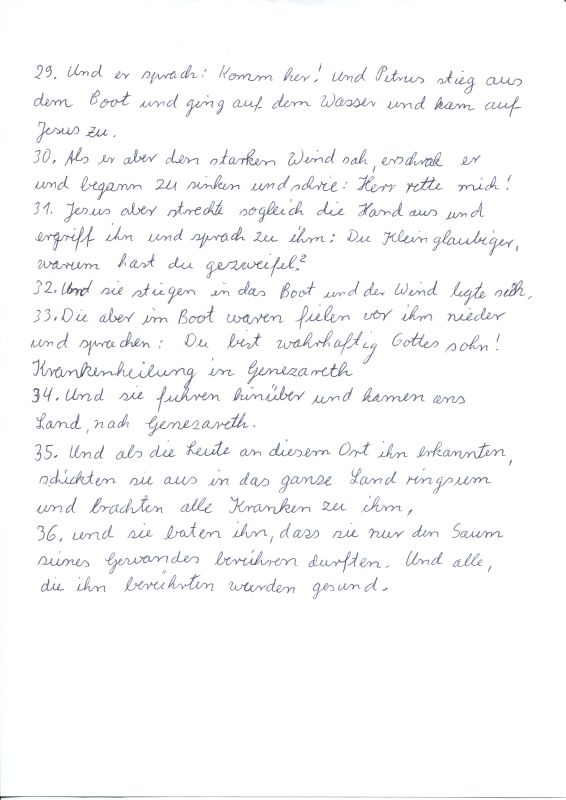 29. Und er sprach: Komm her! Und Petrus stieg aus
dem Boot und ging auf dem Wasser und kam auf
Jesus zu.
30. Als er aber den starken Wind sah, erschrak er
und begann zu sinken und schrie: Herr rette mich!
31. Jesus aber streckte sogleich die Hand aus und
ergriff ihn und sprach zu ihm: Du Kleinglaubiger,
warum hast du gezweifel?
32. Und sie stiegen in das Boot und der Wind legte sich.
33. Die aber im Boot waren fielen vor ihm nieder
und sprachen: Du bist wahrhaftig Gottes sohn!
Krankenheilung in Genezareth
34. Und sie fuhren hinüber und kamen ans
Land, nach Genezareth.
35. Und als die Leute an diesem Ort ihn erkannten,
schickten sie aus in das ganze Land ringsum
und brachten alle Kranken zu ihm,
36. und sie baten ihn, dass sie nur den Saum
seines Gewandes berühren durften. Und alle,
die ihn berührten wurden gesund.